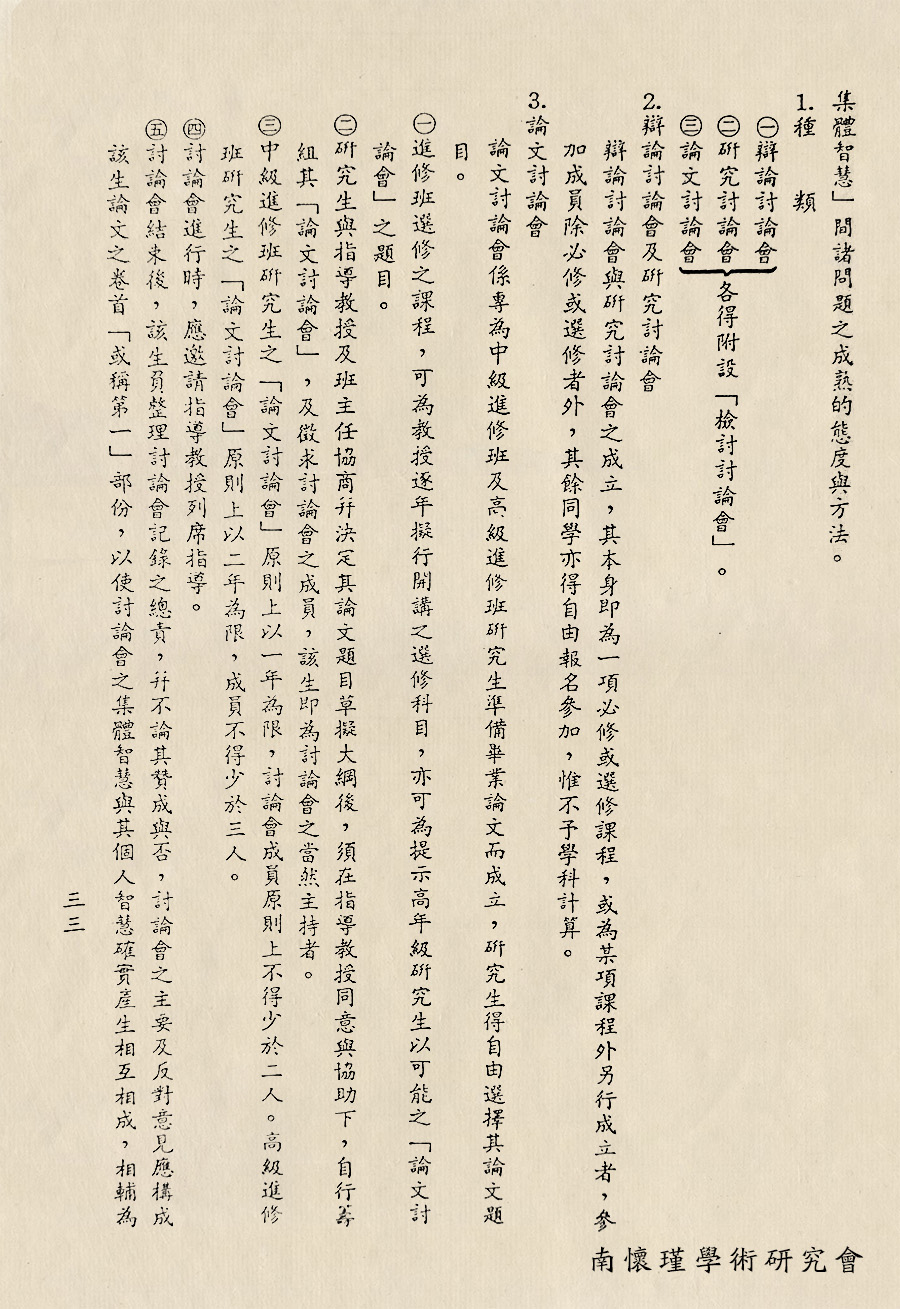 集體智慧」問諸問題之成熟的態度與方法。
1.種　類
㊀辯論討論會
㊁研究討論會　各得附設「檢討討論會」。
㊂論文討論會
2.辯論討論會及研究討論會
辯論討論會與研究討論會之成立，其本身即為一項必修或選修課程，或為某項課程外另行成立者，參
加成員除必修或選修者外，其餘同學亦得自由報名參加，惟不予學科計算。
3.論文討論會
論文討論會係專為中級進修班及高級進修班研究生準備畢業論文而成立，研究生得自由選擇其論文題
目。
㊀進修班選修之課程，可為教授逐年擬行開講之選修科目，亦可為提示高年級研究生以可能之「論文討
論會」之題目。
㊁研究生與指導教授及班主任協商幷決定其論文題目草擬大綱後，須在指導教授同意與協助下，自行籌
組其「論文討論會」，及徵求討論會之成員，該生即為討論會之當然主持者。
㊂中級進修班研究生之「論文討論會」原則上以一年為限，討論會成員原則上不得少於二人。高級進修
班研究生之「論文討論會」原則上以二年為限，成員不得少於三人。
㊃討論會進行時，應邀請指導教授列席指導。
㊄討論會結束後，該生員整理討論會記錄之總責，幷不論其贊成與否，討論會之主要及反對意見應構成
該生論文之卷首「或稱第一」部份，以使討論會之集體智慧與其個人智慧確實產生相互相成，相輔為
三三
南懷瑾學術研究會